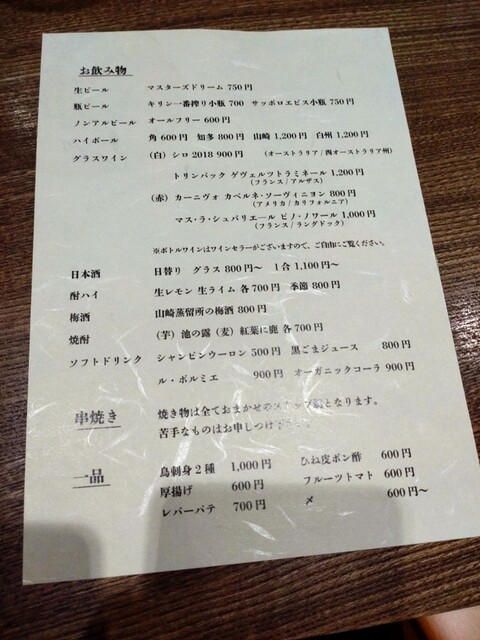 お飲み物
生ビール マスターズドリーム 750円
瓶ビール キリン一番搾り小瓶 700 サッポロエビス小瓶 750円
ノンアルビール オールフリー 600円
ハイボール 角 600円 知多 800円 山崎 1,200円 白州 1,200円
グラスワイン (白) シロ 2018 900円 (オーストラリア / 西オーストラリア州)
トリンバック ゲヴェルツトラミネール 1,200円
(フランス / アルザス)
(赤) カーニヴォ カベルネ・ソーヴィニヨン 800円
(アメリカ / カリフォルニア)
マス・ラ・シュバリエール ピノ・ノワール 1,000円
(フランス / ラングドック)
※ボトルワインはワインセラーがございますので、ご自由にご覧ください。
日本酒 日替り グラス 800円～ 1合 1,100円～
酎ハイ 生レモン 生ライム 各 700円 季節 800円
梅酒 山崎蒸留所の梅酒 800円
焼酎 (芋) 池の露 (麦) 紅葉に鹿 各 700円
ソフトドリンク シャンピンウーロン 500円 黒ごまジュース 800円
ル・ポルミエ 900円 オーガニックコーラ 900円
串焼き 焼き物は全ておまかせのストップ制となります。
苦手なものはお申しつけ下さい。
一品 鳥刺身2種 1,000円 ひね皮ポン酢 600円
厚揚げ 600円 フルーツトマト 600円
レバーパテ 700円 〆 600円～